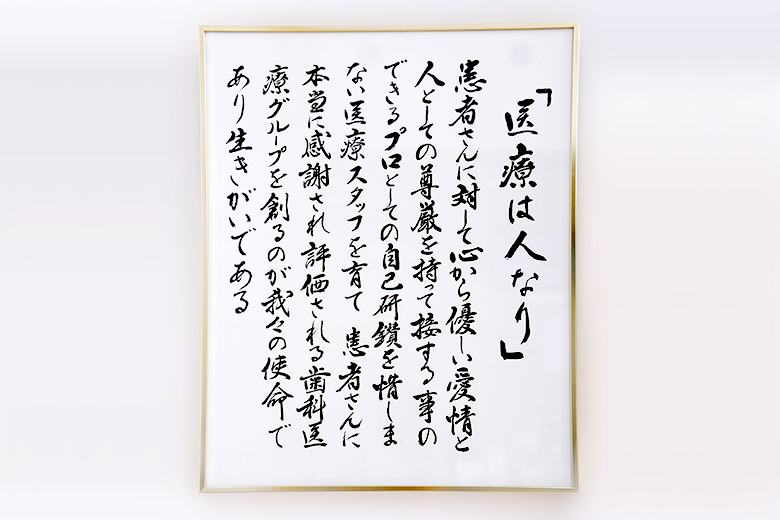 「医療は人なり」
患者さんに対して心から優しい愛情と
人としての尊厳を持って接する事の
できるプロとしての自己研鑽を惜しま
ない医療スタッフを育て 患者さんに
本当に感謝され評価される歯科医
療グループを創るのが我々の使命で
あり生きがいである